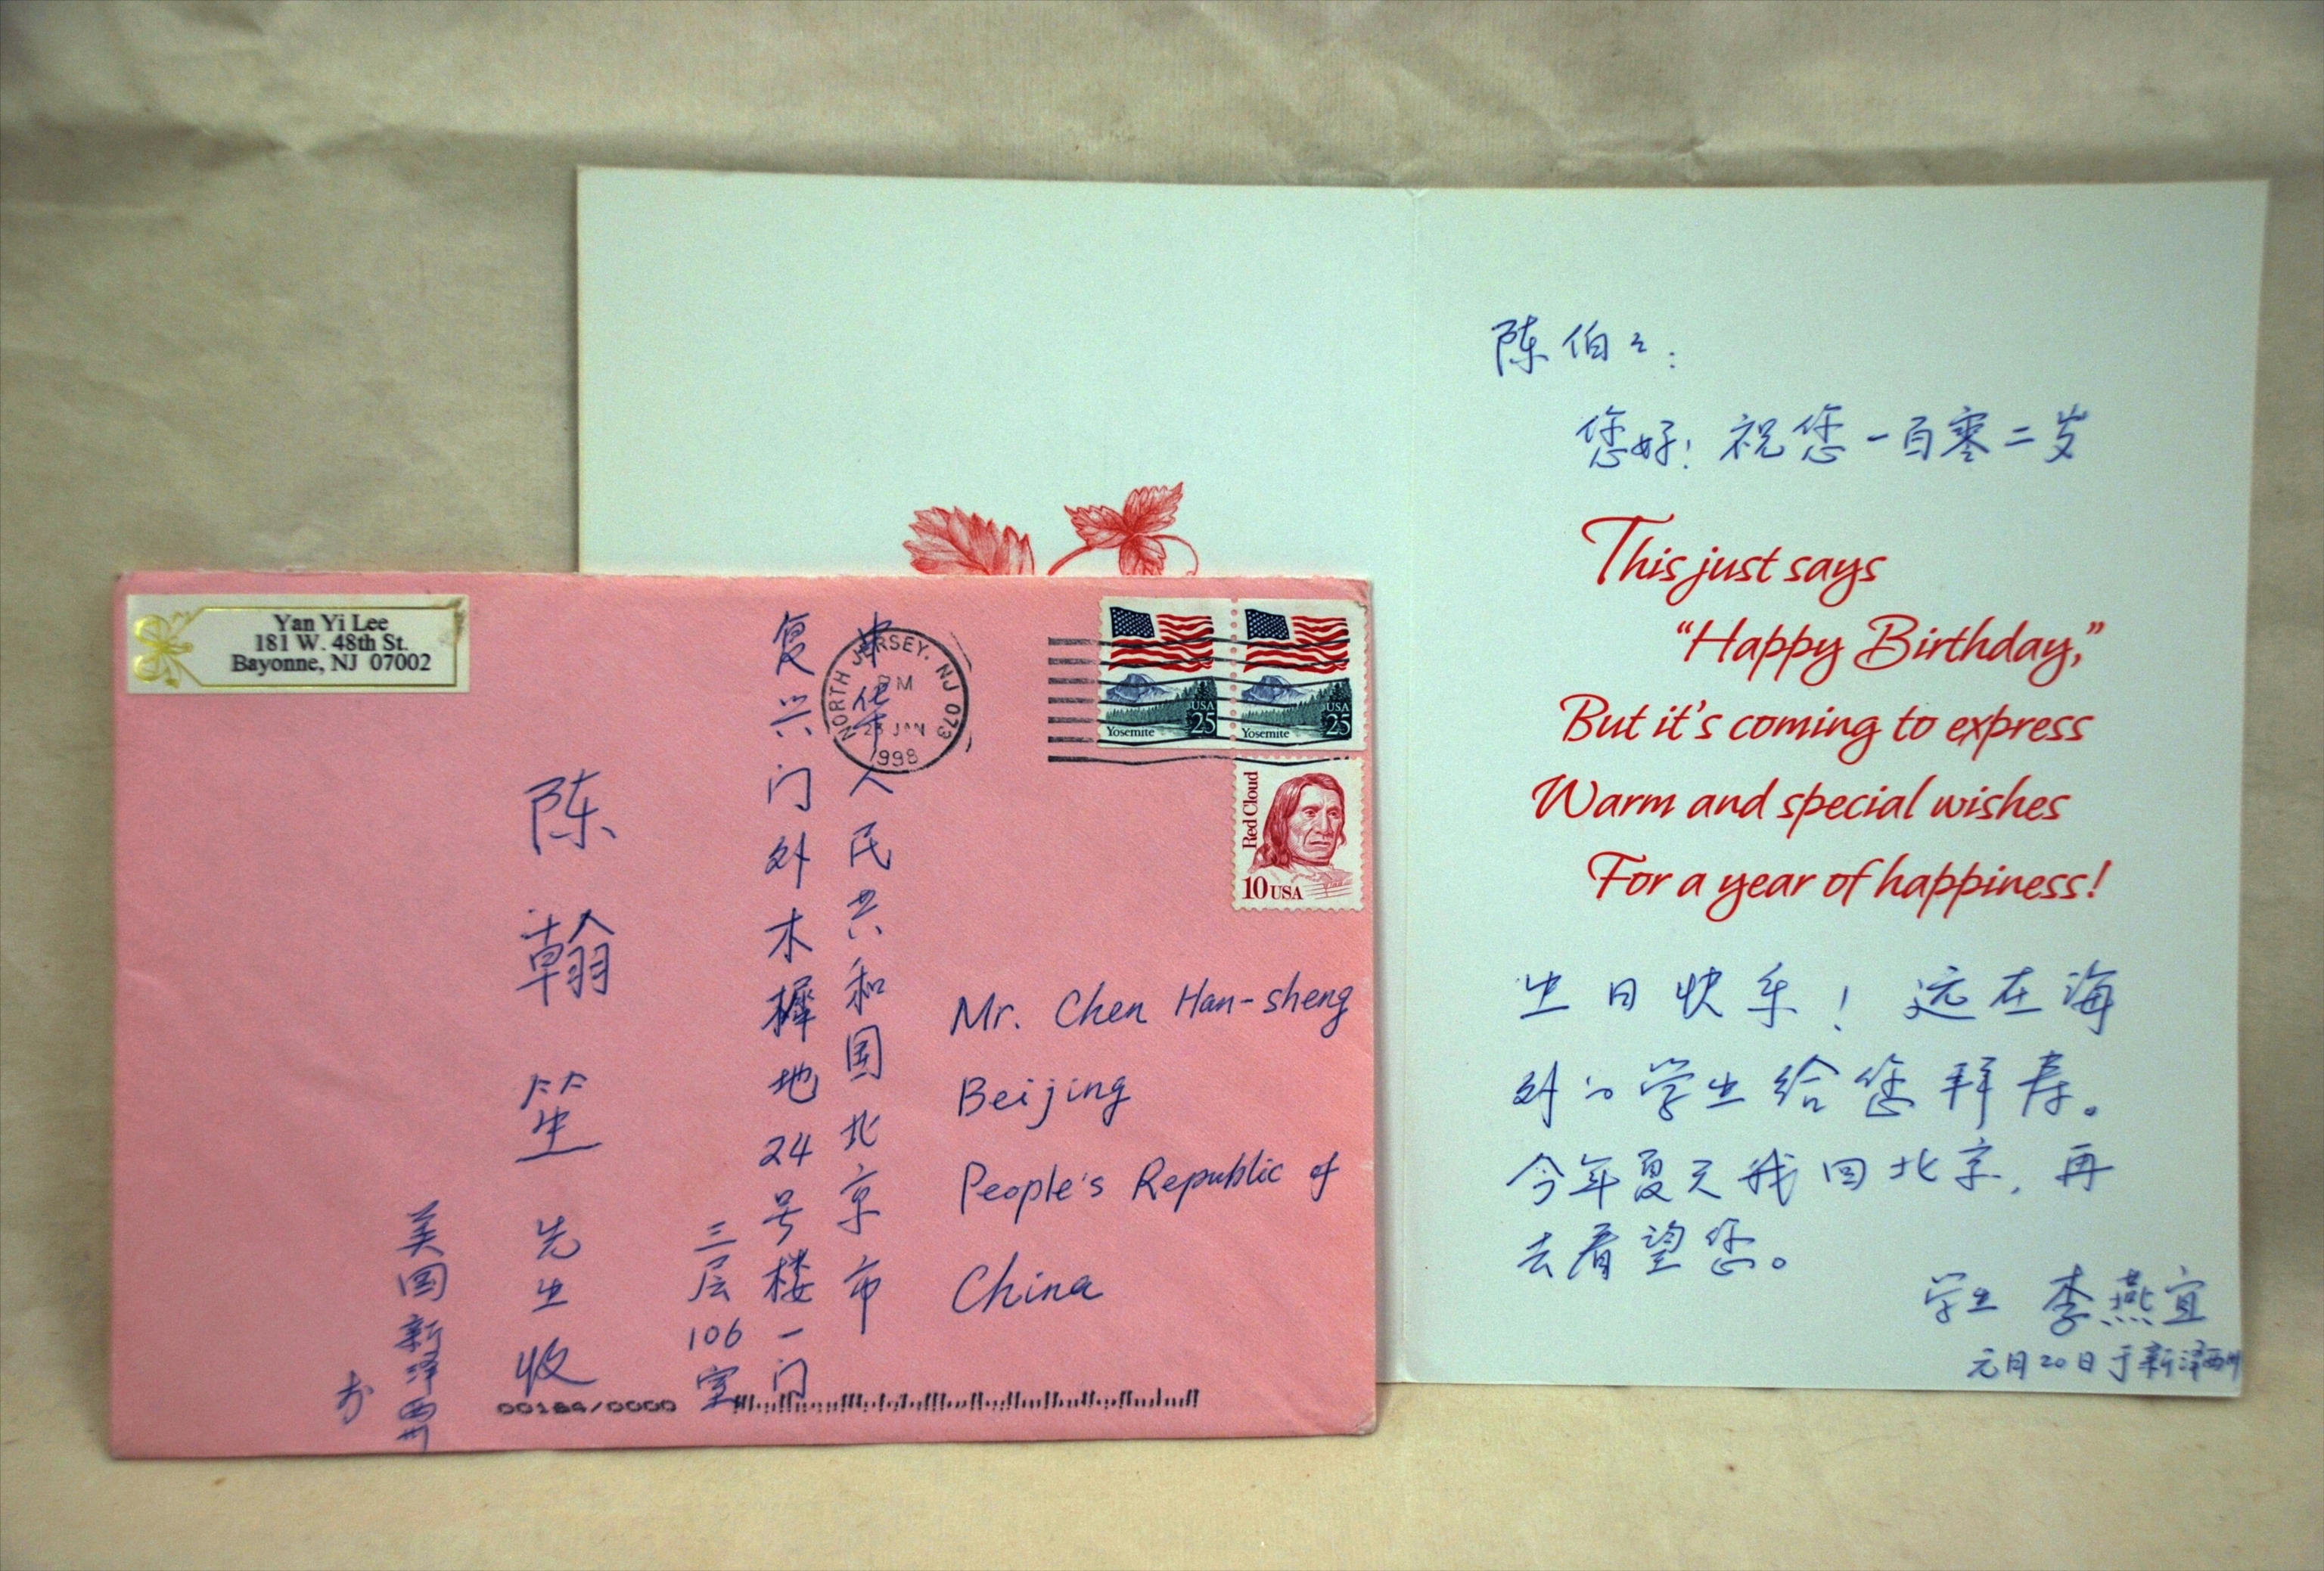 Yan Yi Lee
181 W. 48th St.
Bayonne, NJ 07002
NORTH JERSEY, NJ 073
PM
23 JAN
1998
USA
25
Yosemite
USA
25
Yosemite
Red Cloud
10 USA
中华人民共和国北京市
复兴门外木樨地24号楼一门
三层106室
陈翰笙先生收
美国新泽西州
寄
Mr. Chen Han-sheng
Beijing
People's Republic of
China
陈伯々:
您好!祝您一百零二岁
This just says
“Happy Birthday,”
But it's coming to express
Warm and special wishes
For a year of happiness!
生日快乐!远在海
外的学生给您拜寿。
今年夏天我回北京,再
去看望您。
学生 李燕宜
元月20日于新泽西州